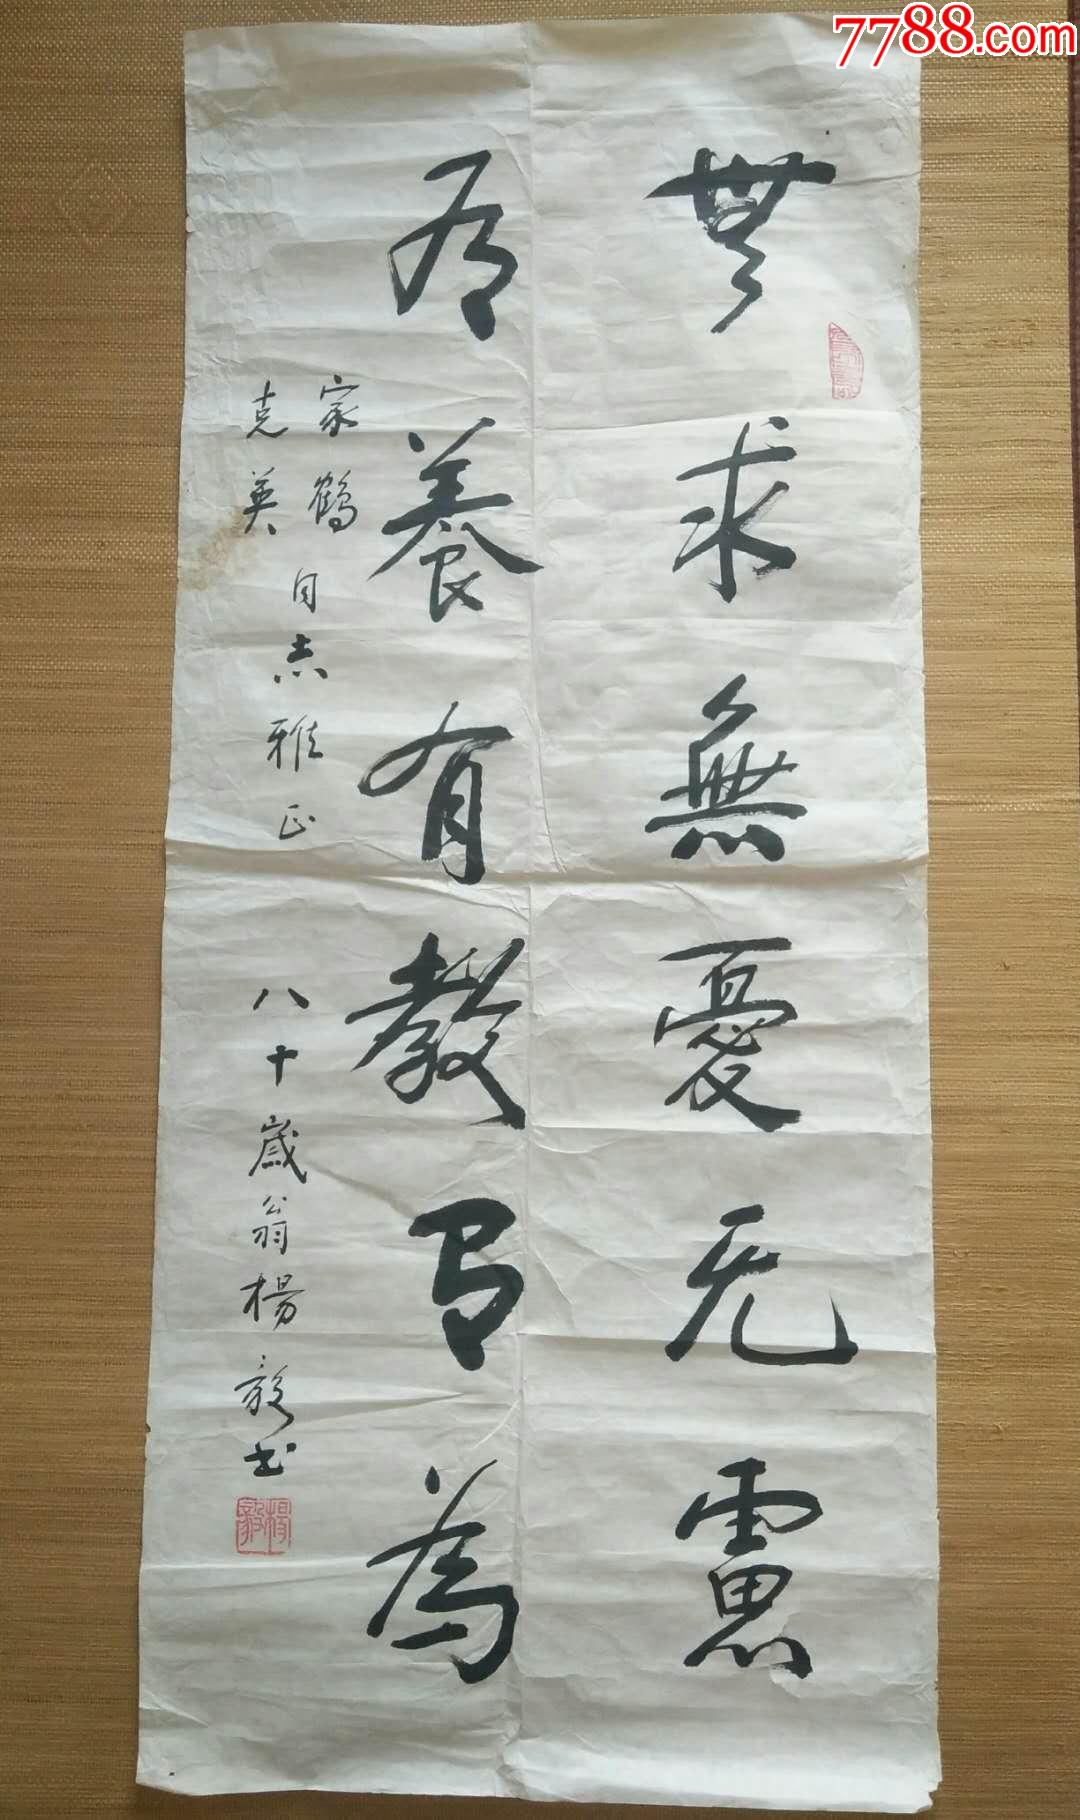 7788.com
無求無憂无慮
有養有教有為
家鶴
克英
同志雅正
八十歲翁楊毅书
楊毅